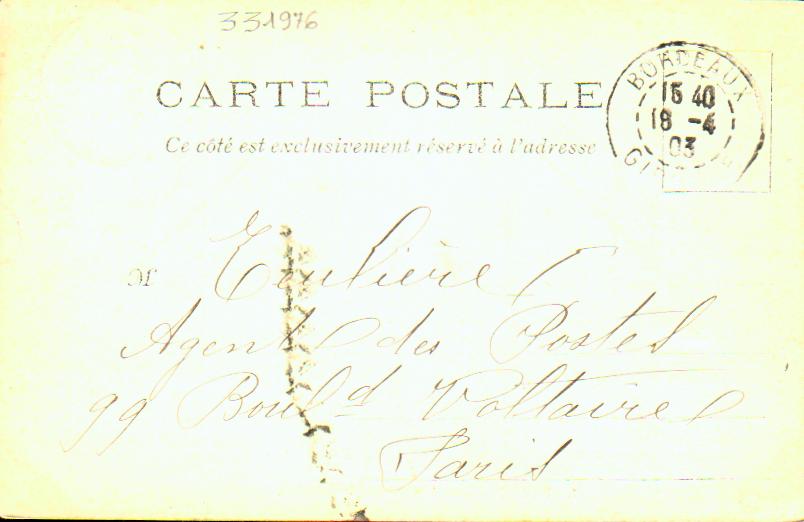 331976
CARTE POSTALE
BORDEAUX
15 40
18 -4
03
Ce côté est exclusivement réservé à l'adresse
M
Agent des Postes
99 Bould Voltaire
Paris